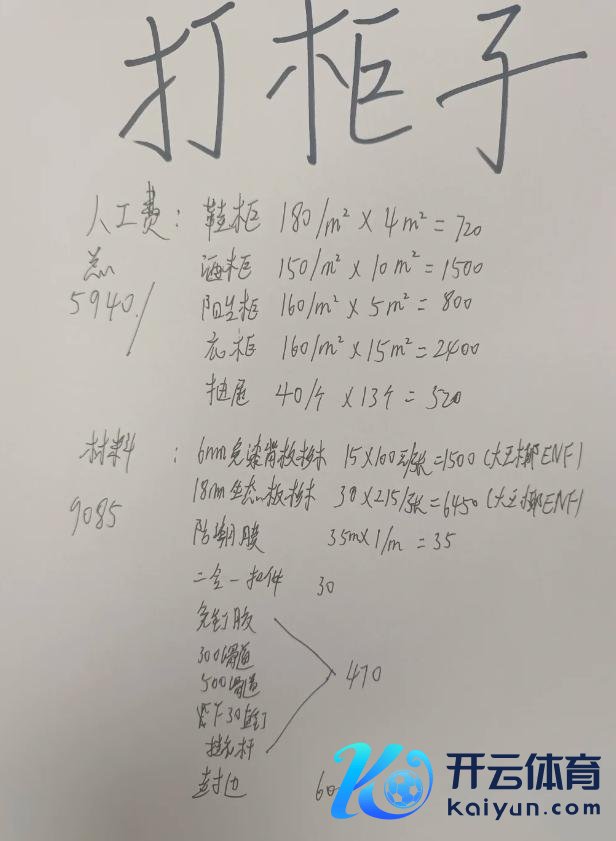 打柜子
人工费: 鞋柜 180/m² × 4m² = 720
酒柜 150/m² × 10m² = 1500
5940./
阳台柜 160/m² × 5m² = 800
衣柜 160/m² × 15m² = 2400
抽屉 40/个 × 13个 = 520
材料: 6mm免漆背板杉木 15×100元/张=1500(大王椰ENF)
18mm生态板杉木 30×215/张=6450(大王椰ENF)
9085
防潮膜 35m×1/m = 35
二合一扣件 30
免钉胶
300滑道
500滑道
470
挂衣杆
封边
开云体育
kaiyun.com